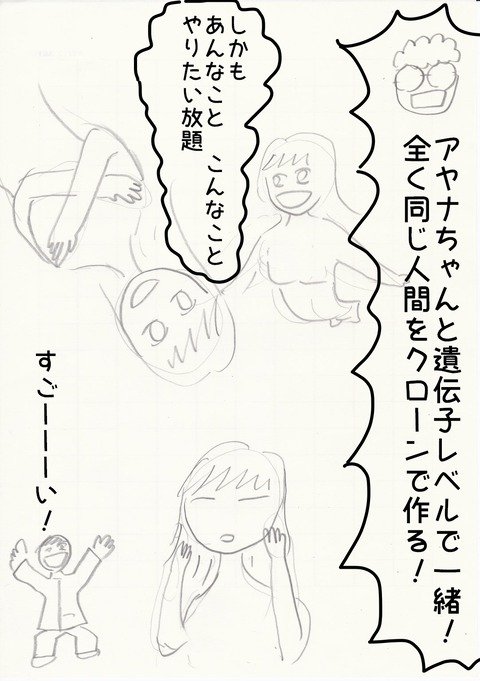 アヤナちゃんと遺伝子レベルで一緒！
全く同じ人間をクローンで作る！
しかも
あんなこと　こんなこと
やりたい放題
すごーーーい！